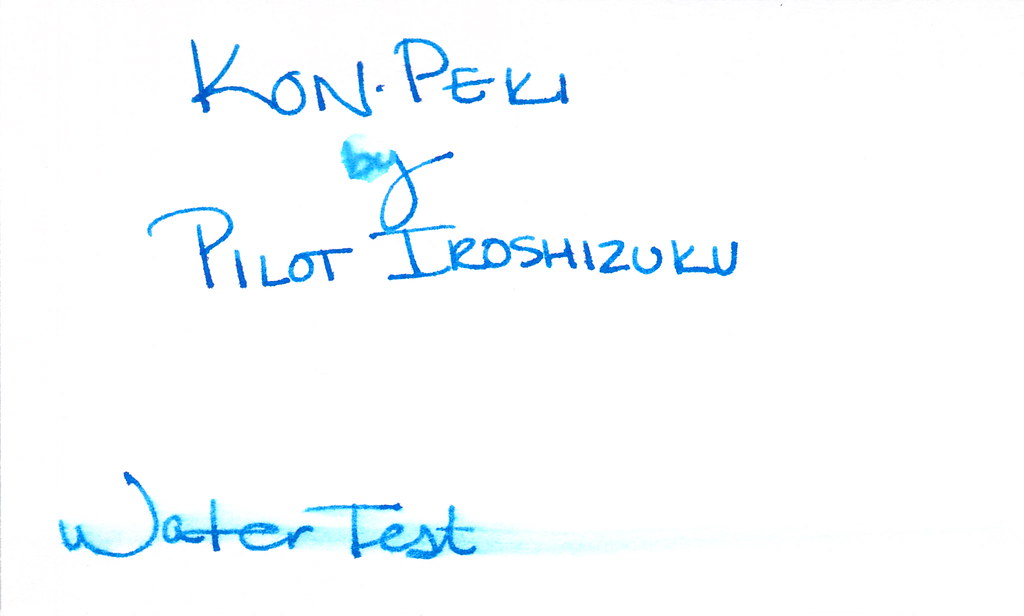 KON-PEKI
by
PILOT IROSHIZUKU
Water Test